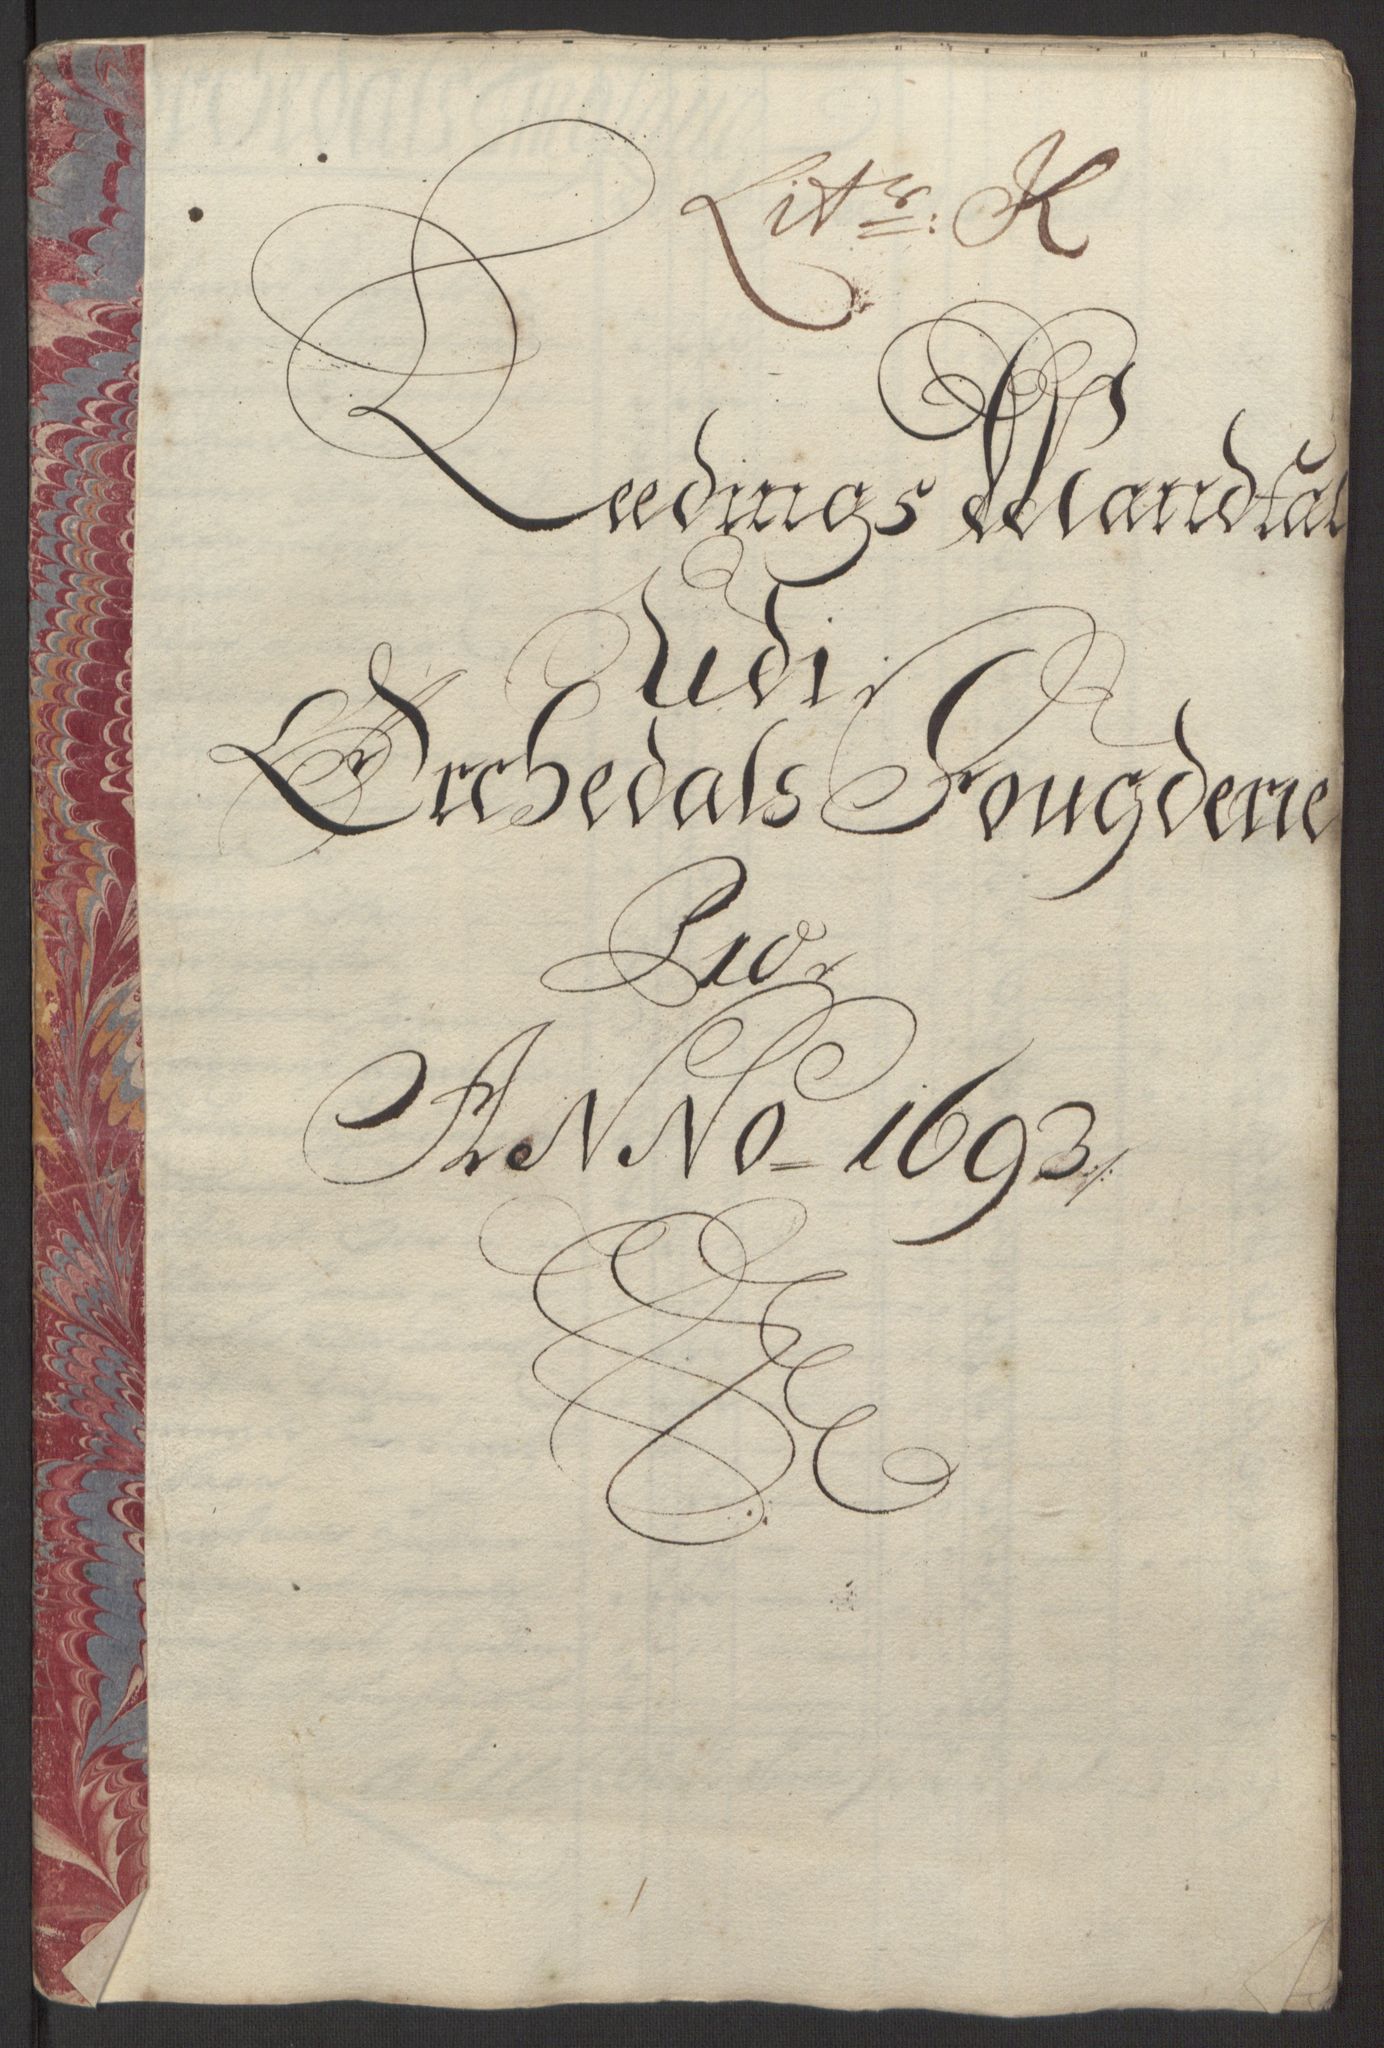 Litr: K
Leedings Mandtal
Udi
Orchedals Fougderie
Pro
ANNO 1693